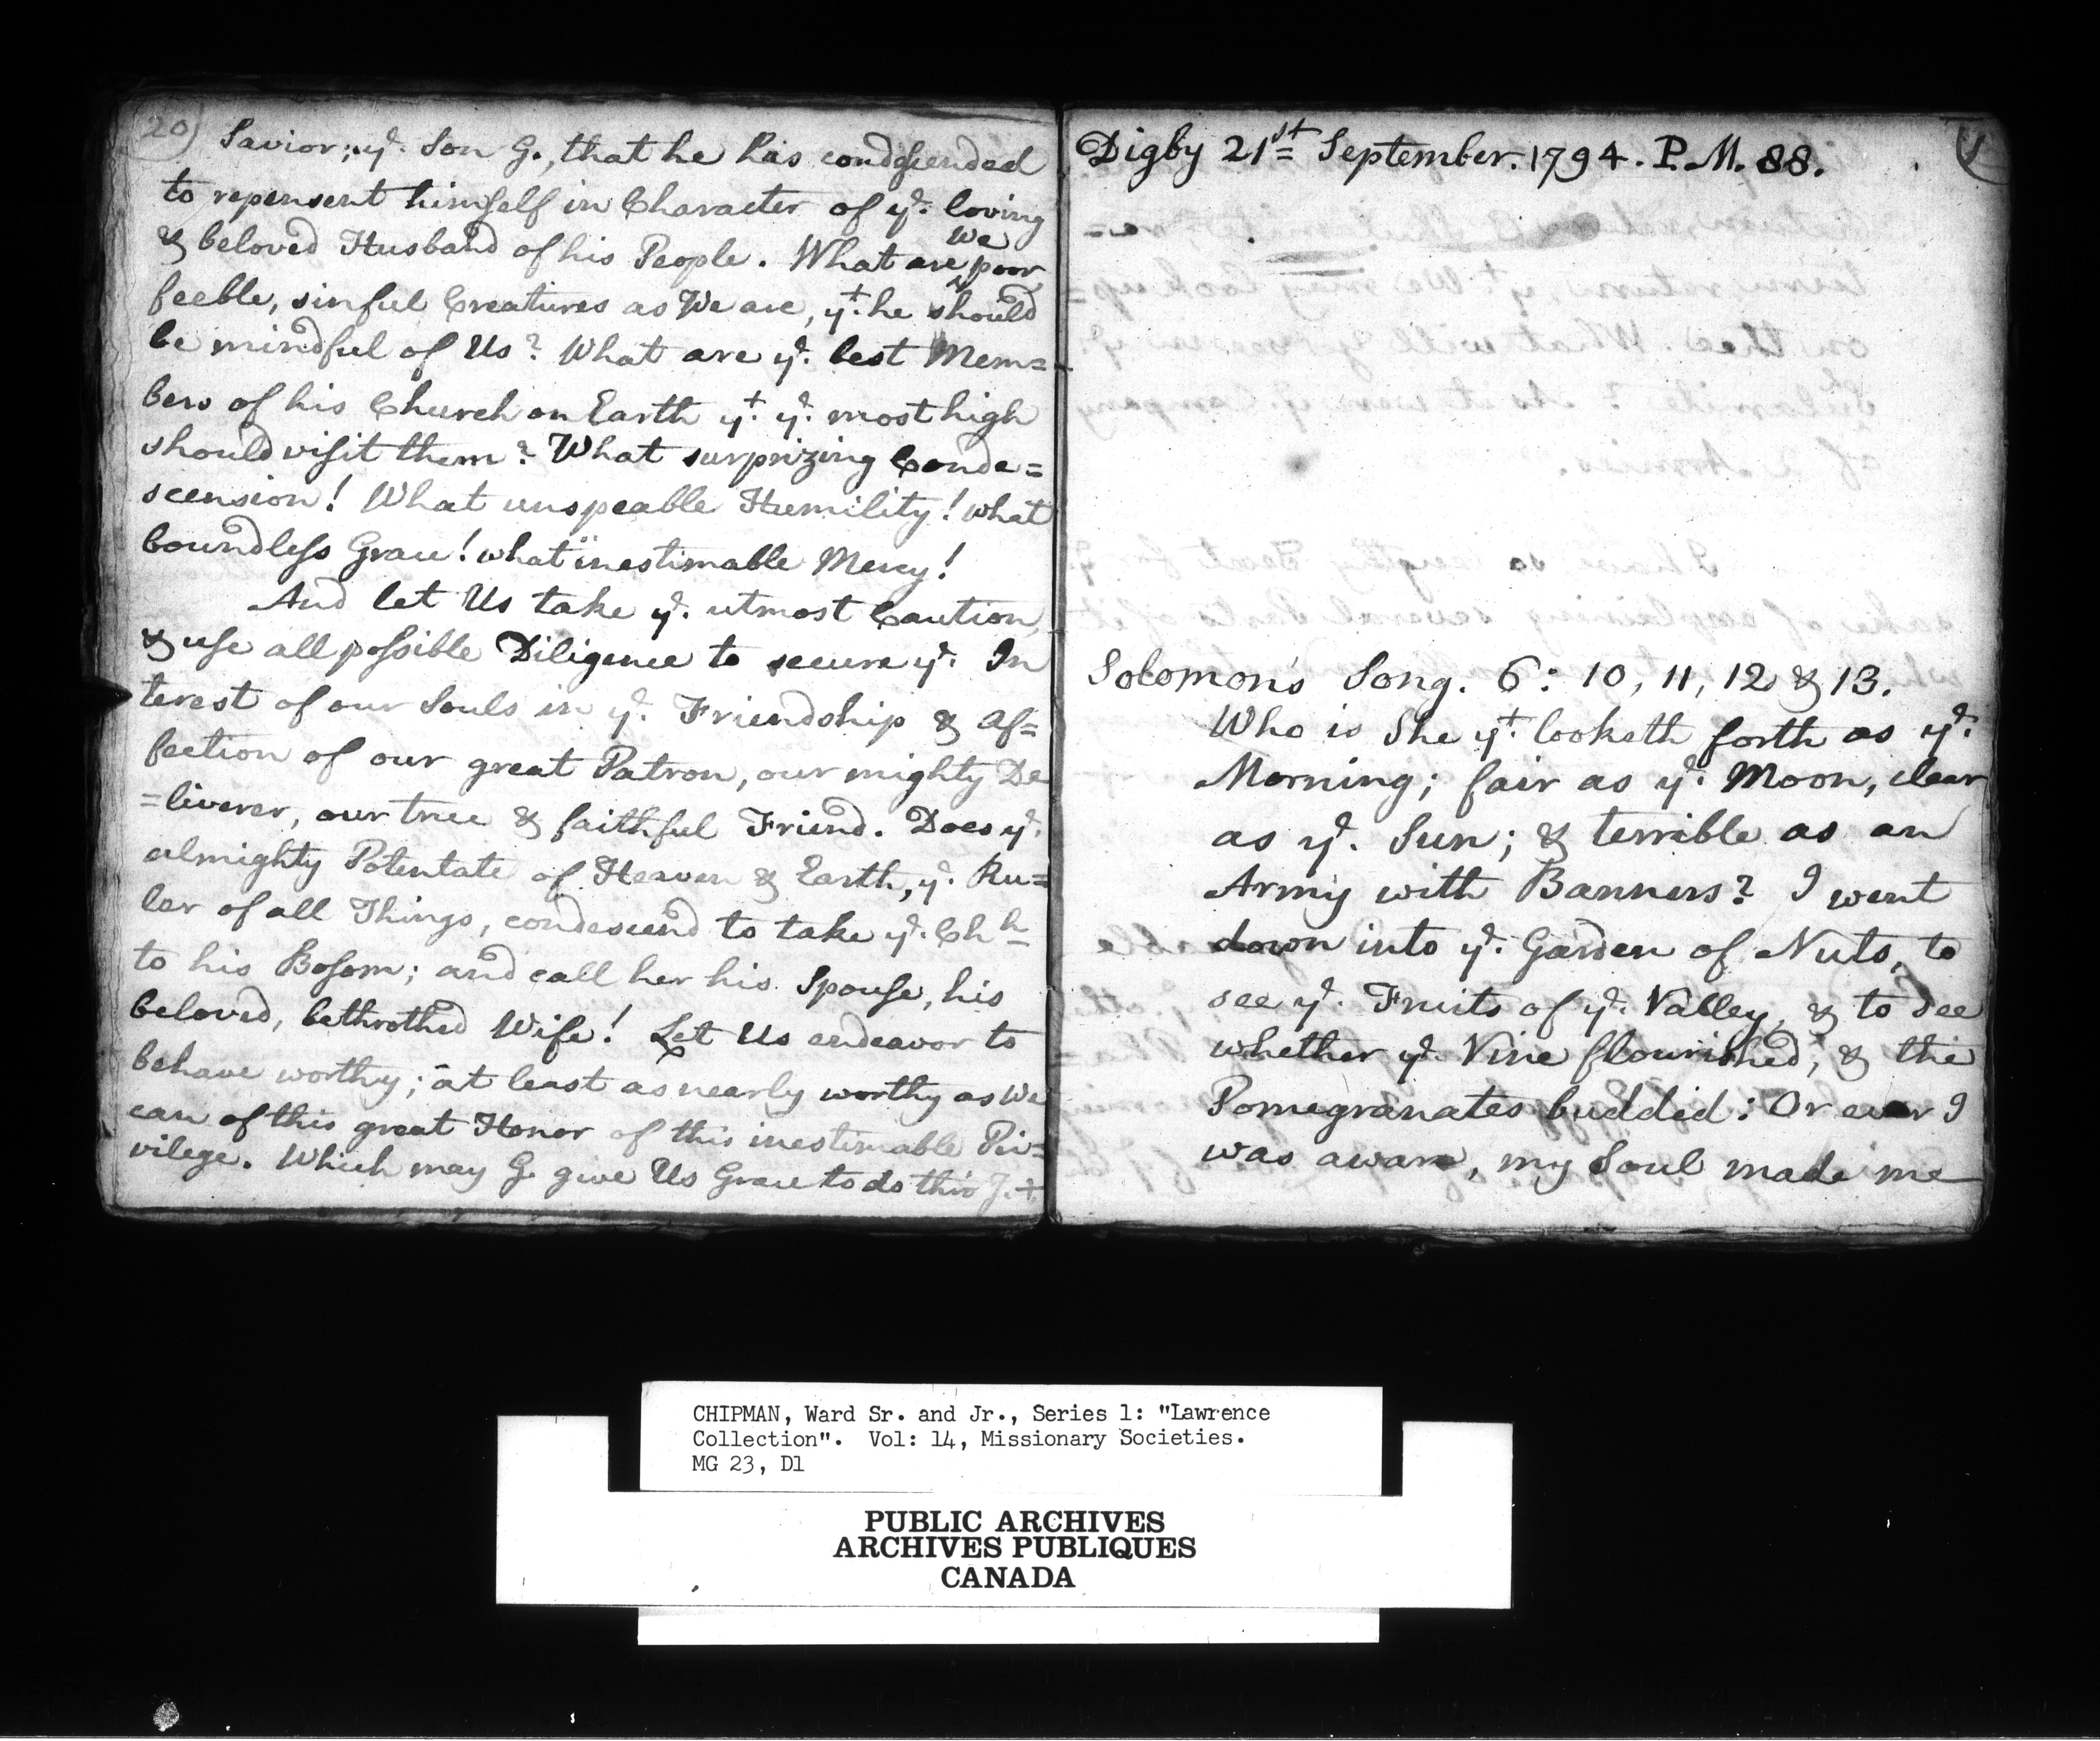 20) Savior; yᵉ. Son G., that he has condescended
to repensent himself in Character of yᵉ. loving
& beloved Husband of his People. What are We poor
feeble, sinful Creatures as We are, yᵗ. he should
be mindful of Us? What are yᵉ. best Mem=
bers of his Church on Earth yᵗ. yᵉ. most high
should visit them? What surprizing Conde=
scension! What unspeable Humility! what
boundless Grace! what inestimable Mercy!
And let Us take yᵉ. utmost Caution,
& use all possible Diligence to secure yᵉ. In
terest of our Souls in yᵉ. Friendship & Af=
fection of our great Patron, our mighty De
=liverer, our true & faithful Friend. Does yᵉ.
almighty Potentate of Heaven & Earth, yᵉ. Ru=
ler of all Things, condescend to take yᵉ. Chʰ
to his Bosom; and call her his Spouse, his
beloved, bethrothed Wife! Let Us endeavor to
behave worthy; at least as nearly worthy as We
can of this great Honor of this inestimable Pri=
vilege. Which may G. give Us Grace to do thro J. +.
1
Digby 21ˢᵗ September. 1794. P. M. 88.
Solomon's Song. 6: 10, 11, 12 & 13.
Who is She yᵗ. looketh forth as yᵉ.
Morning; fair as yᵉ. Moon, clear
as yᵉ. Sun; & terrible as an
Army with Banners? I went
down into yᵉ. Garden of Nuts, to
see yᵉ. Fruits of yᵉ. Valley, & to see
whether yᵉ. Vine flourished, & the
Pomegranates budded: Or ever I
was aware, my Soul made me
CHIPMAN, Ward Sr. and Jr., Series 1: "Lawrence
Collection". Vol: 14, Missionary Societies.
MG 23, D1
PUBLIC ARCHIVES
ARCHIVES PUBLIQUES
CANADA